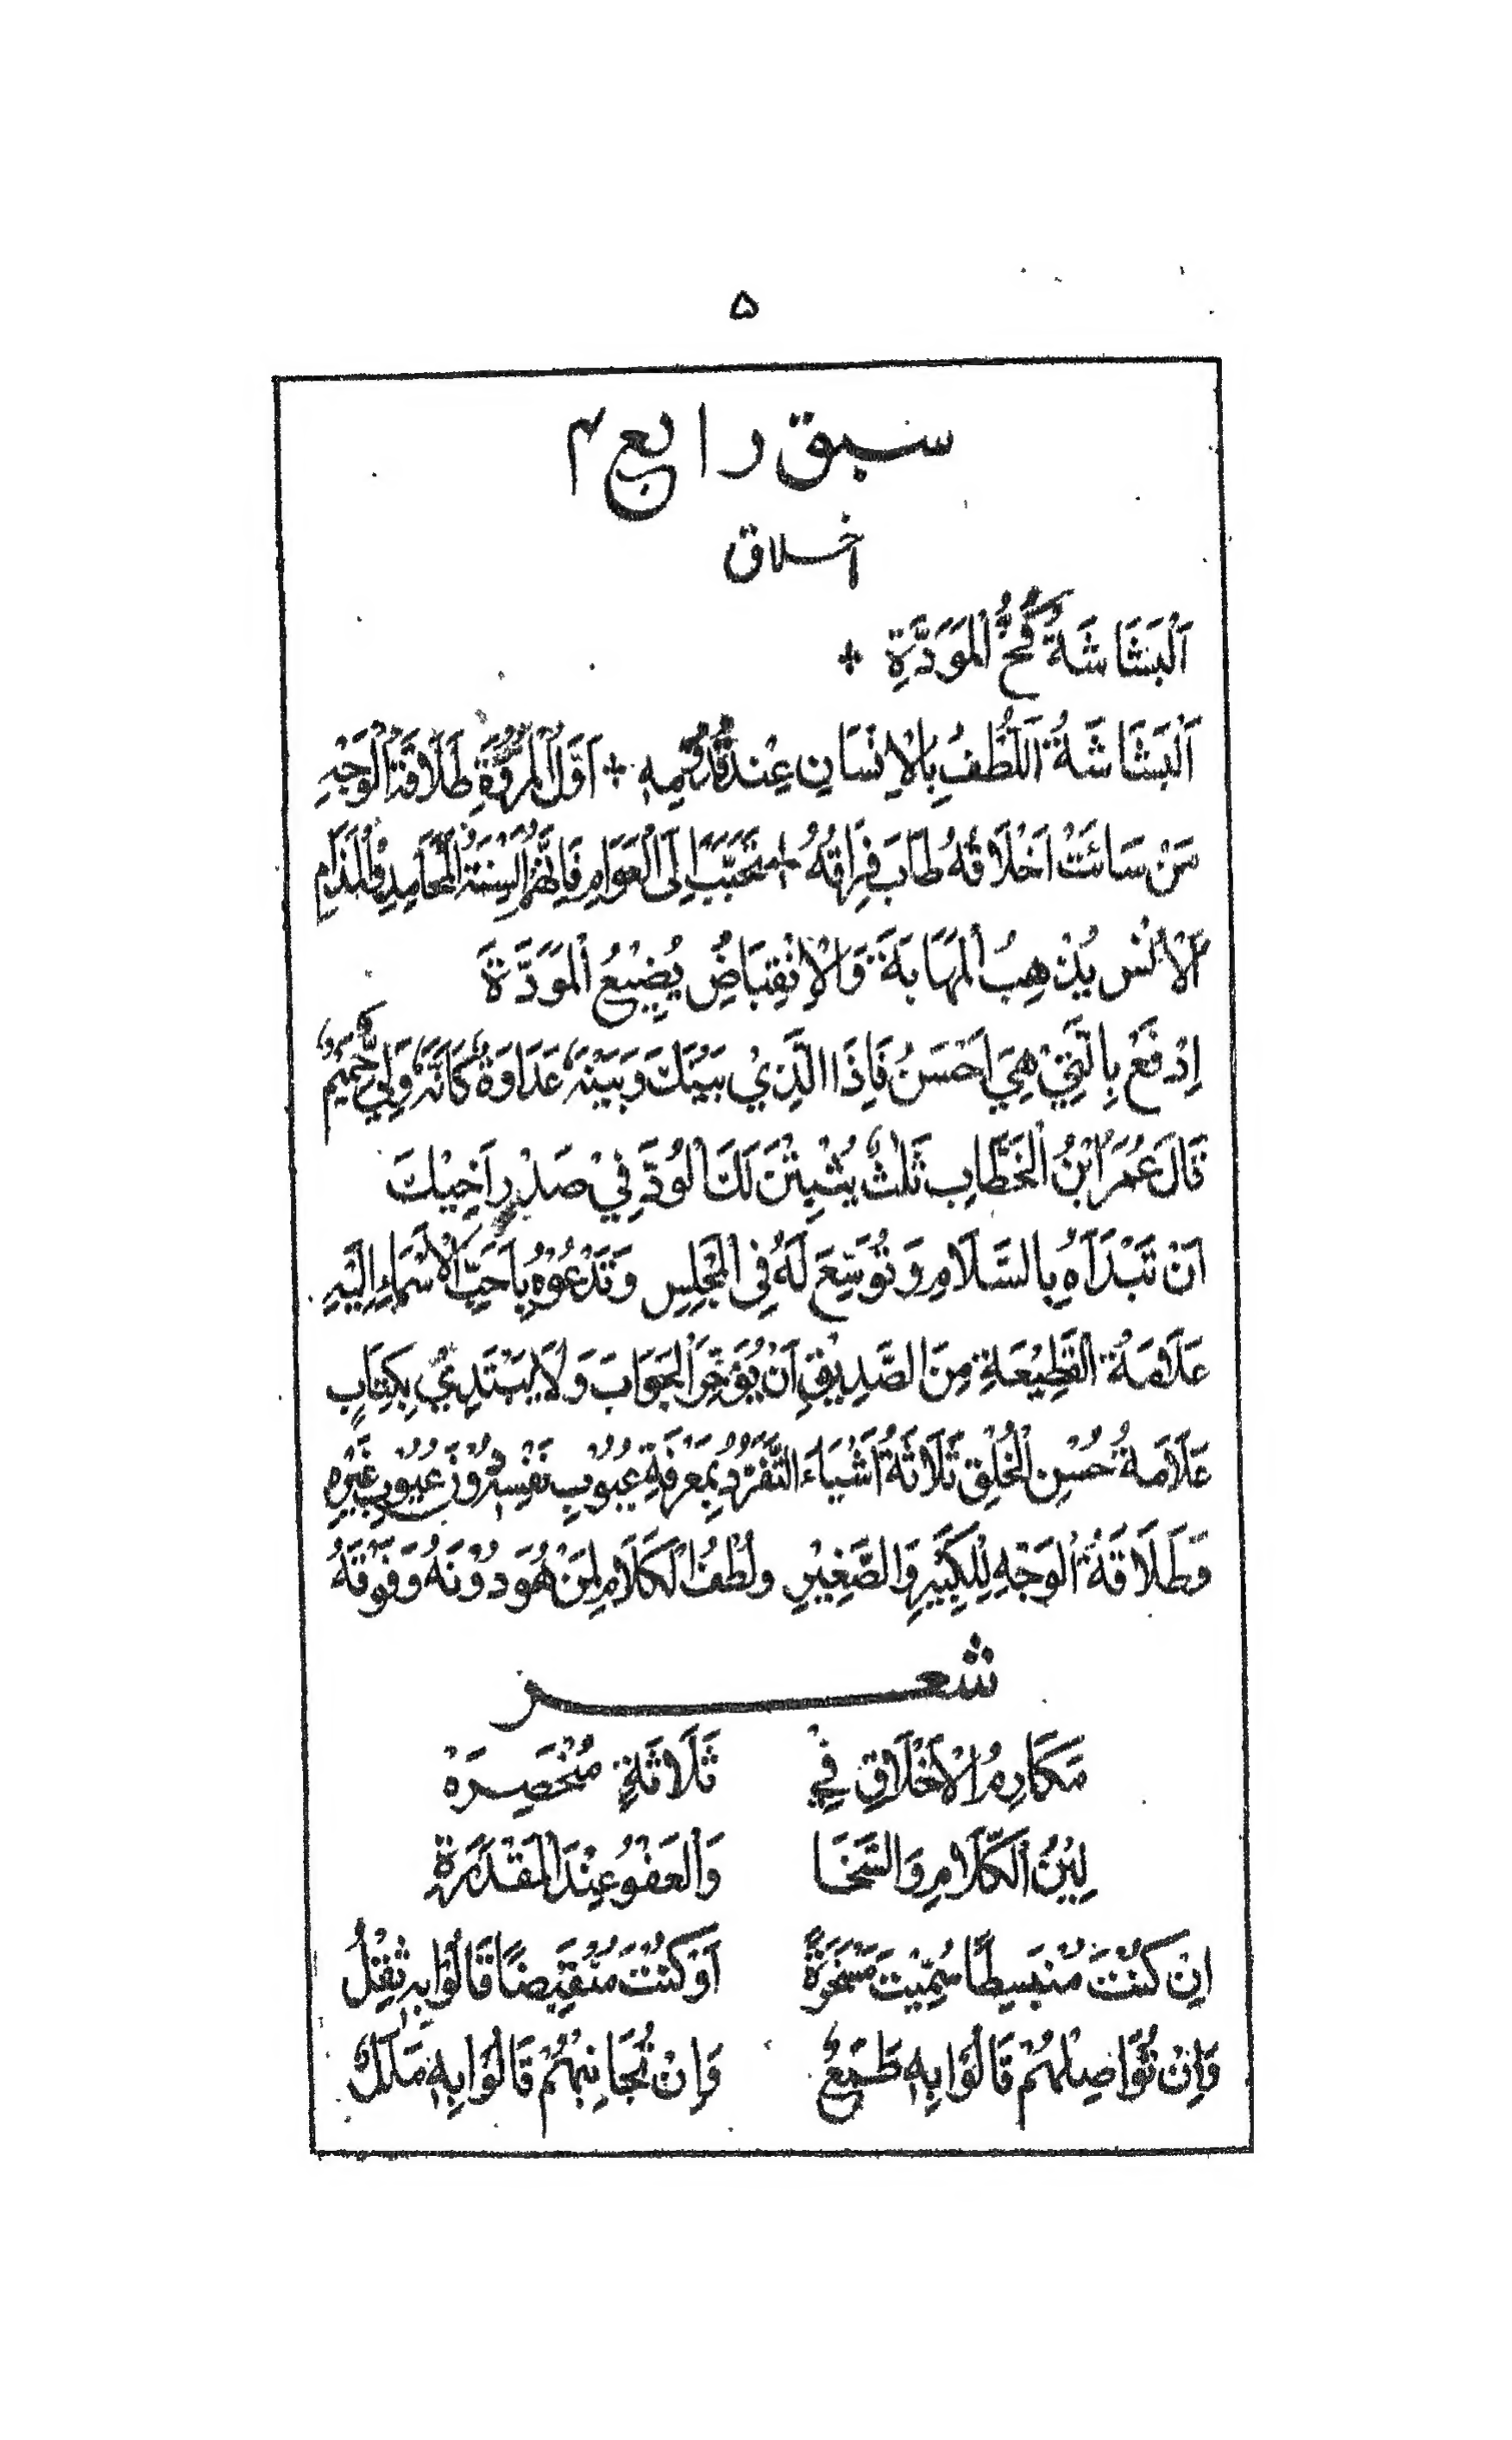 ۵
سبق رابع ۴
اخلاق
اَلْبَشَاشَةُ مُخُّ الْمَوَدَّةِ +
اَلْبَشَاشَةُ اَللُّطْفُ بِالْاِنْسَانِ عِنْدَ قُدُوْمِهٖ + اَوَّلُ الْمُرُوَّةِ طَلَاقَةُ الْوَجْهِ
مَنْ سَائَتْ اَخْلَاقُهُ طَابَ فِرَاقُهُ + تَحَبَّبْ اِلَى الْعَوَامِ فَاِنَّهُمْ اَلْسِنَةُ الْمَحَامِدِ وَالْمَذَامِ
اَلْاُنْس يُذْهِبُ الْمَهَابَةَ وَالْاِنْقِبَاضُ يُضِيْعُ الْمَوَدَّةَ
اِدْفَعْ بِالَّتِيْ هِيَ اَحْسَنُ فَاِذَا الَّذِيْ بَيْنَكَ وَبَيْنَهٗ عَدَاوَةٌ كَاَنَّهٗ وَلِيٌّ حَمِيْمٌ
قَالَ عُمَرُ ابْنُ الْخَطَّابِ ثَلٰثٌ يُثْبِتْنَ لَكَ الْوُدَّ فِيْ صَدْرِ اَخِيْكَ
اَنْ تَبْدَاَهُ بِالسَّلَامِ وَتُوَسِّعَ لَهُ فِى الْمَجْلِسِ وَتَدْعُوْهُ بِاَحَبِّ الْاَسْمَاءِ اِلَيْهِ
عَلَامَةُ الْقَطِيْعَةِ مِنَ الصَّدِيْقِ اَنْ يُؤَخِّرَ الْجَوَابَ وَلَا يَبْتَدِئُ بِكِتَابٍ
عَلَامَةُ حُسْنِ الْخُلْقِ ثَلَاثَةُ اَشْيَاءَ التَّفَرُّدُ بِمَعْرِفَةِ عُيُوْبِ نَفْسِهٖ دُوْنَ عُيُوْبِ غَيْرِهِ
وَطَلَاقَةُ الْوَجْهِ لِلْكَبِيْرِ وَالصَّغِيْرِ ولُطْفُ الْكَلَامِ لِمَنْ هُوَ دُوْنَهُ وَفَوْقَهُ
شعر
مَكَارِمُ الْاَخْلَاقِ فِيْ ثَلَاثَةٍ مُنْحَصِرَهْ
لِيْنُ الْكَلَامِ وَالسَّخَا وَالْعَفْوُ عِنْدَ الْمَقْدَرَةِ
اِنْ كُنْتَ مُنْبَسِطًا سُمِّيْتَ مَسْخَرَةً اَوْ كُنْتَ مُنْقَبِضًا قَالُوْا بِهٖ ثِقْلُ
وَاِنْ تُوَاصِلْهُمْ قَالُوْا بِهٖ طَمَعٌ وَاِنْ تُجَانِبْهُمْ قَالُوْا بِهٖ مَلَلٌ